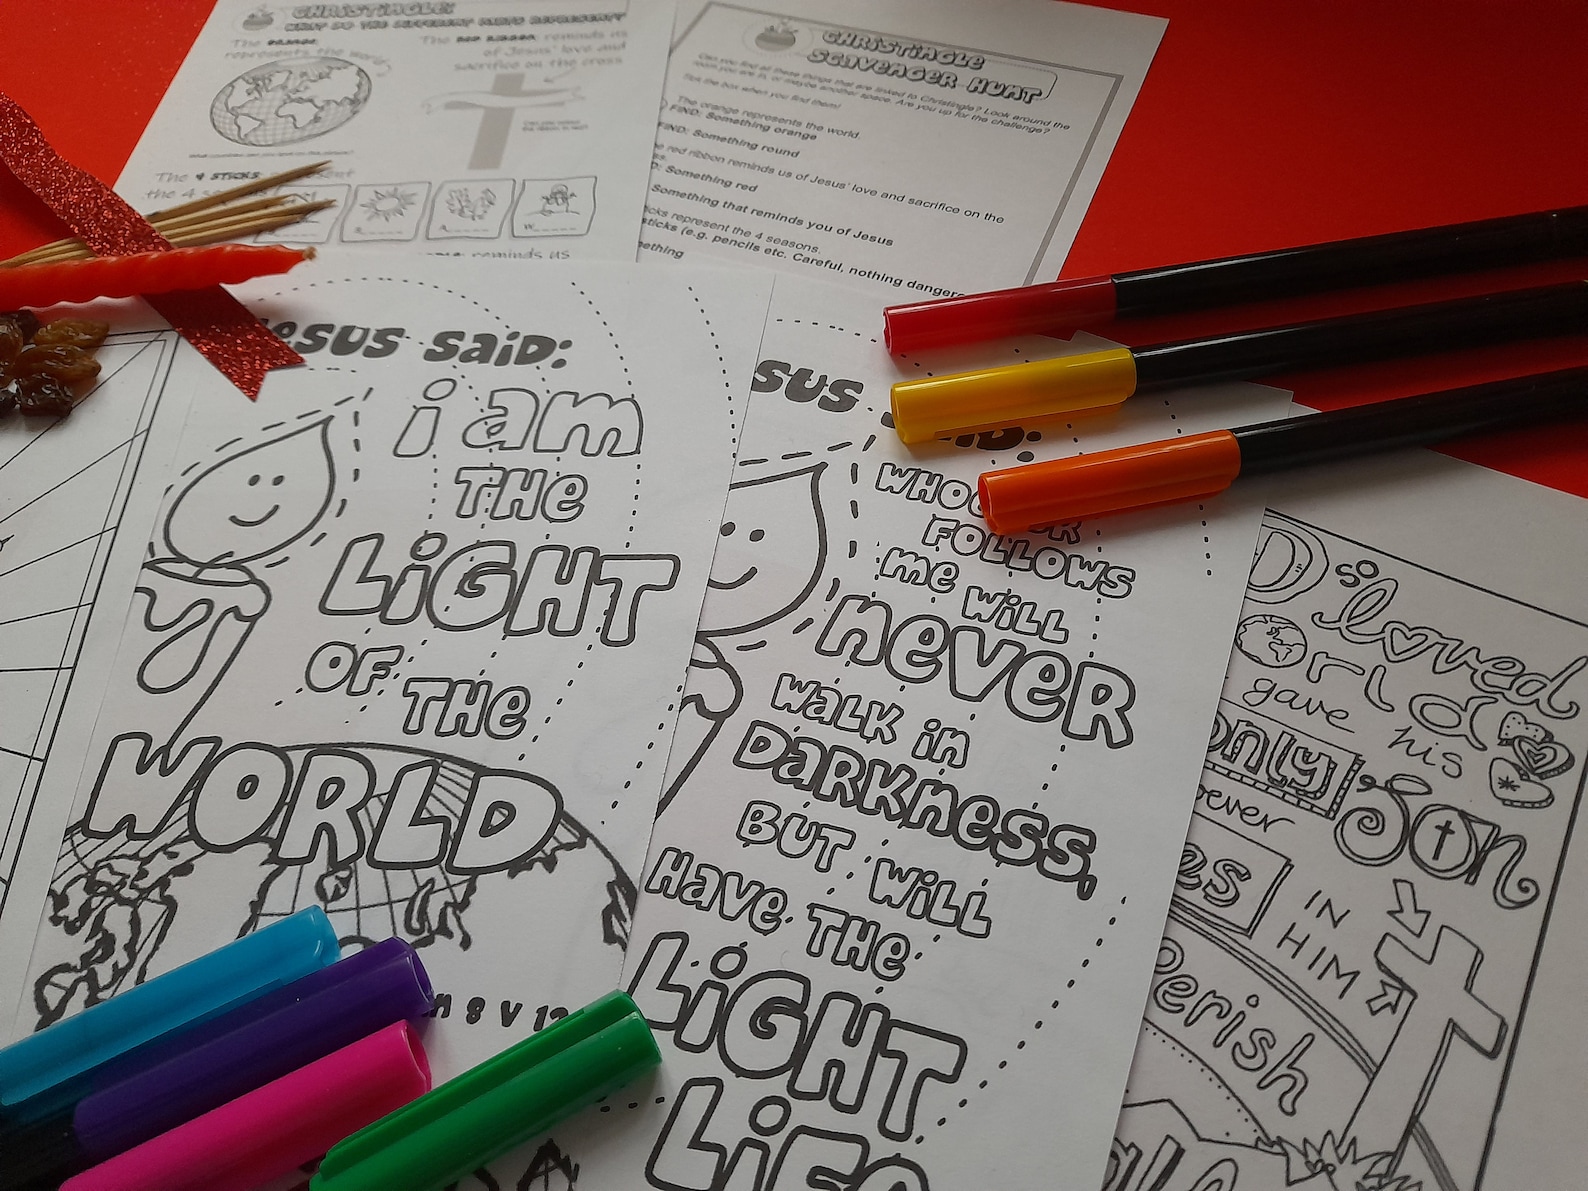 CHRISTINGLE:
WHAT DO THE DIFFERENT PARTS REPRESENT?
The ORANGE
represents the world
The RED RIBBON reminds us
of Jesus' love and
sacrifice on the cross
The 4 STICKS
the 4
S
A
W
reminds us
CHRISTINGLE
SCAVENGER HUNT
Can you find all these things that are linked to Christingle? Look around the
room you are in, or maybe another space. Are you up for the challenge?
Tick the box when you find them!
The orange represents the world.
FIND: Something orange
FIND: Something round
red ribbon reminds us of Jesus' love and sacrifice on the
Something red
Something that reminds you of Jesus
represent the 4 seasons.
sticks (e.g. pencils etc. Careful, nothing
JESUS SAID:
i am
THE
LiGHT
OF THE
WORLD
8 V 12
SAID:
WHOEVER
FOLLOWS
me WiLL
never
WALK in
DARKNESS,
BUT WiLL
HAVE THE
LiGHT
LiFE
so loved
gave his
only Son
IN
HIM
perish